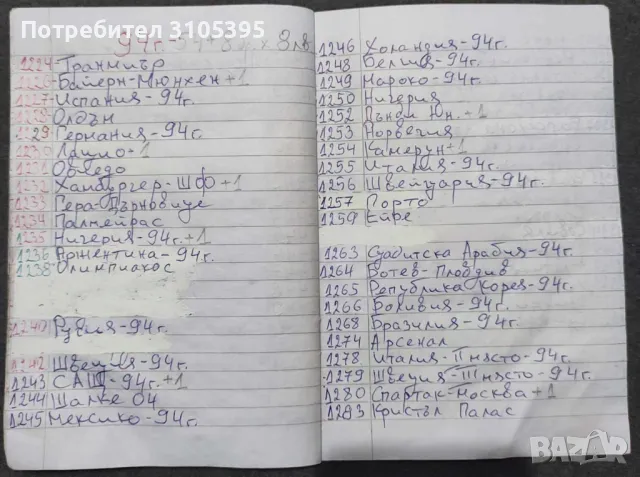 Потребител 3105395
94г.
8лв.
1224 Транмиър
1226 Байерн-Мюнхен+1
1227 Испания-94г.
1228 Олдън
1229 Германия-94г.
1230 +1
1231 Овиедо
1232 Хамбургер-ШФ+1
1233
1234 Палмейрас
1235 Нигерия-94г.+1
1236 Аржентина-94г.
1238 Олимпиакос
1240 Русия-94г.
1242 Швеция-94г.
1243 САЩ-94г.+1
1244 Шалке 04
1245 Мексико-94г.
1246 Холандия-94г.
1248 Белгия-94г.
1249 Мароко-94г.
1250 Нигерия
1252 Дънди Юн.+1
1253 Норвегия
1254 Камерун+1
1255 Италия-94г.
1256 Швейцария-94г.
1257 Порто
1259 Ейре
1263 Саудитска Арабия-94г.
1264 Ботев-Пловдив
1265 Република Корея-94г.
1266 Боливия-94г.
1268 Бразилия-94г.
1274 Арсенал
1278 Италия-II място-94г.
1279 Швеция-III място-94г.
1280 Спартак-Москва+1
1283 Кристъл Палас
BAZAR